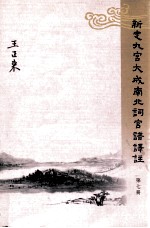 新定九宮大成南北詞宮譜譯註
王正來
第七冊